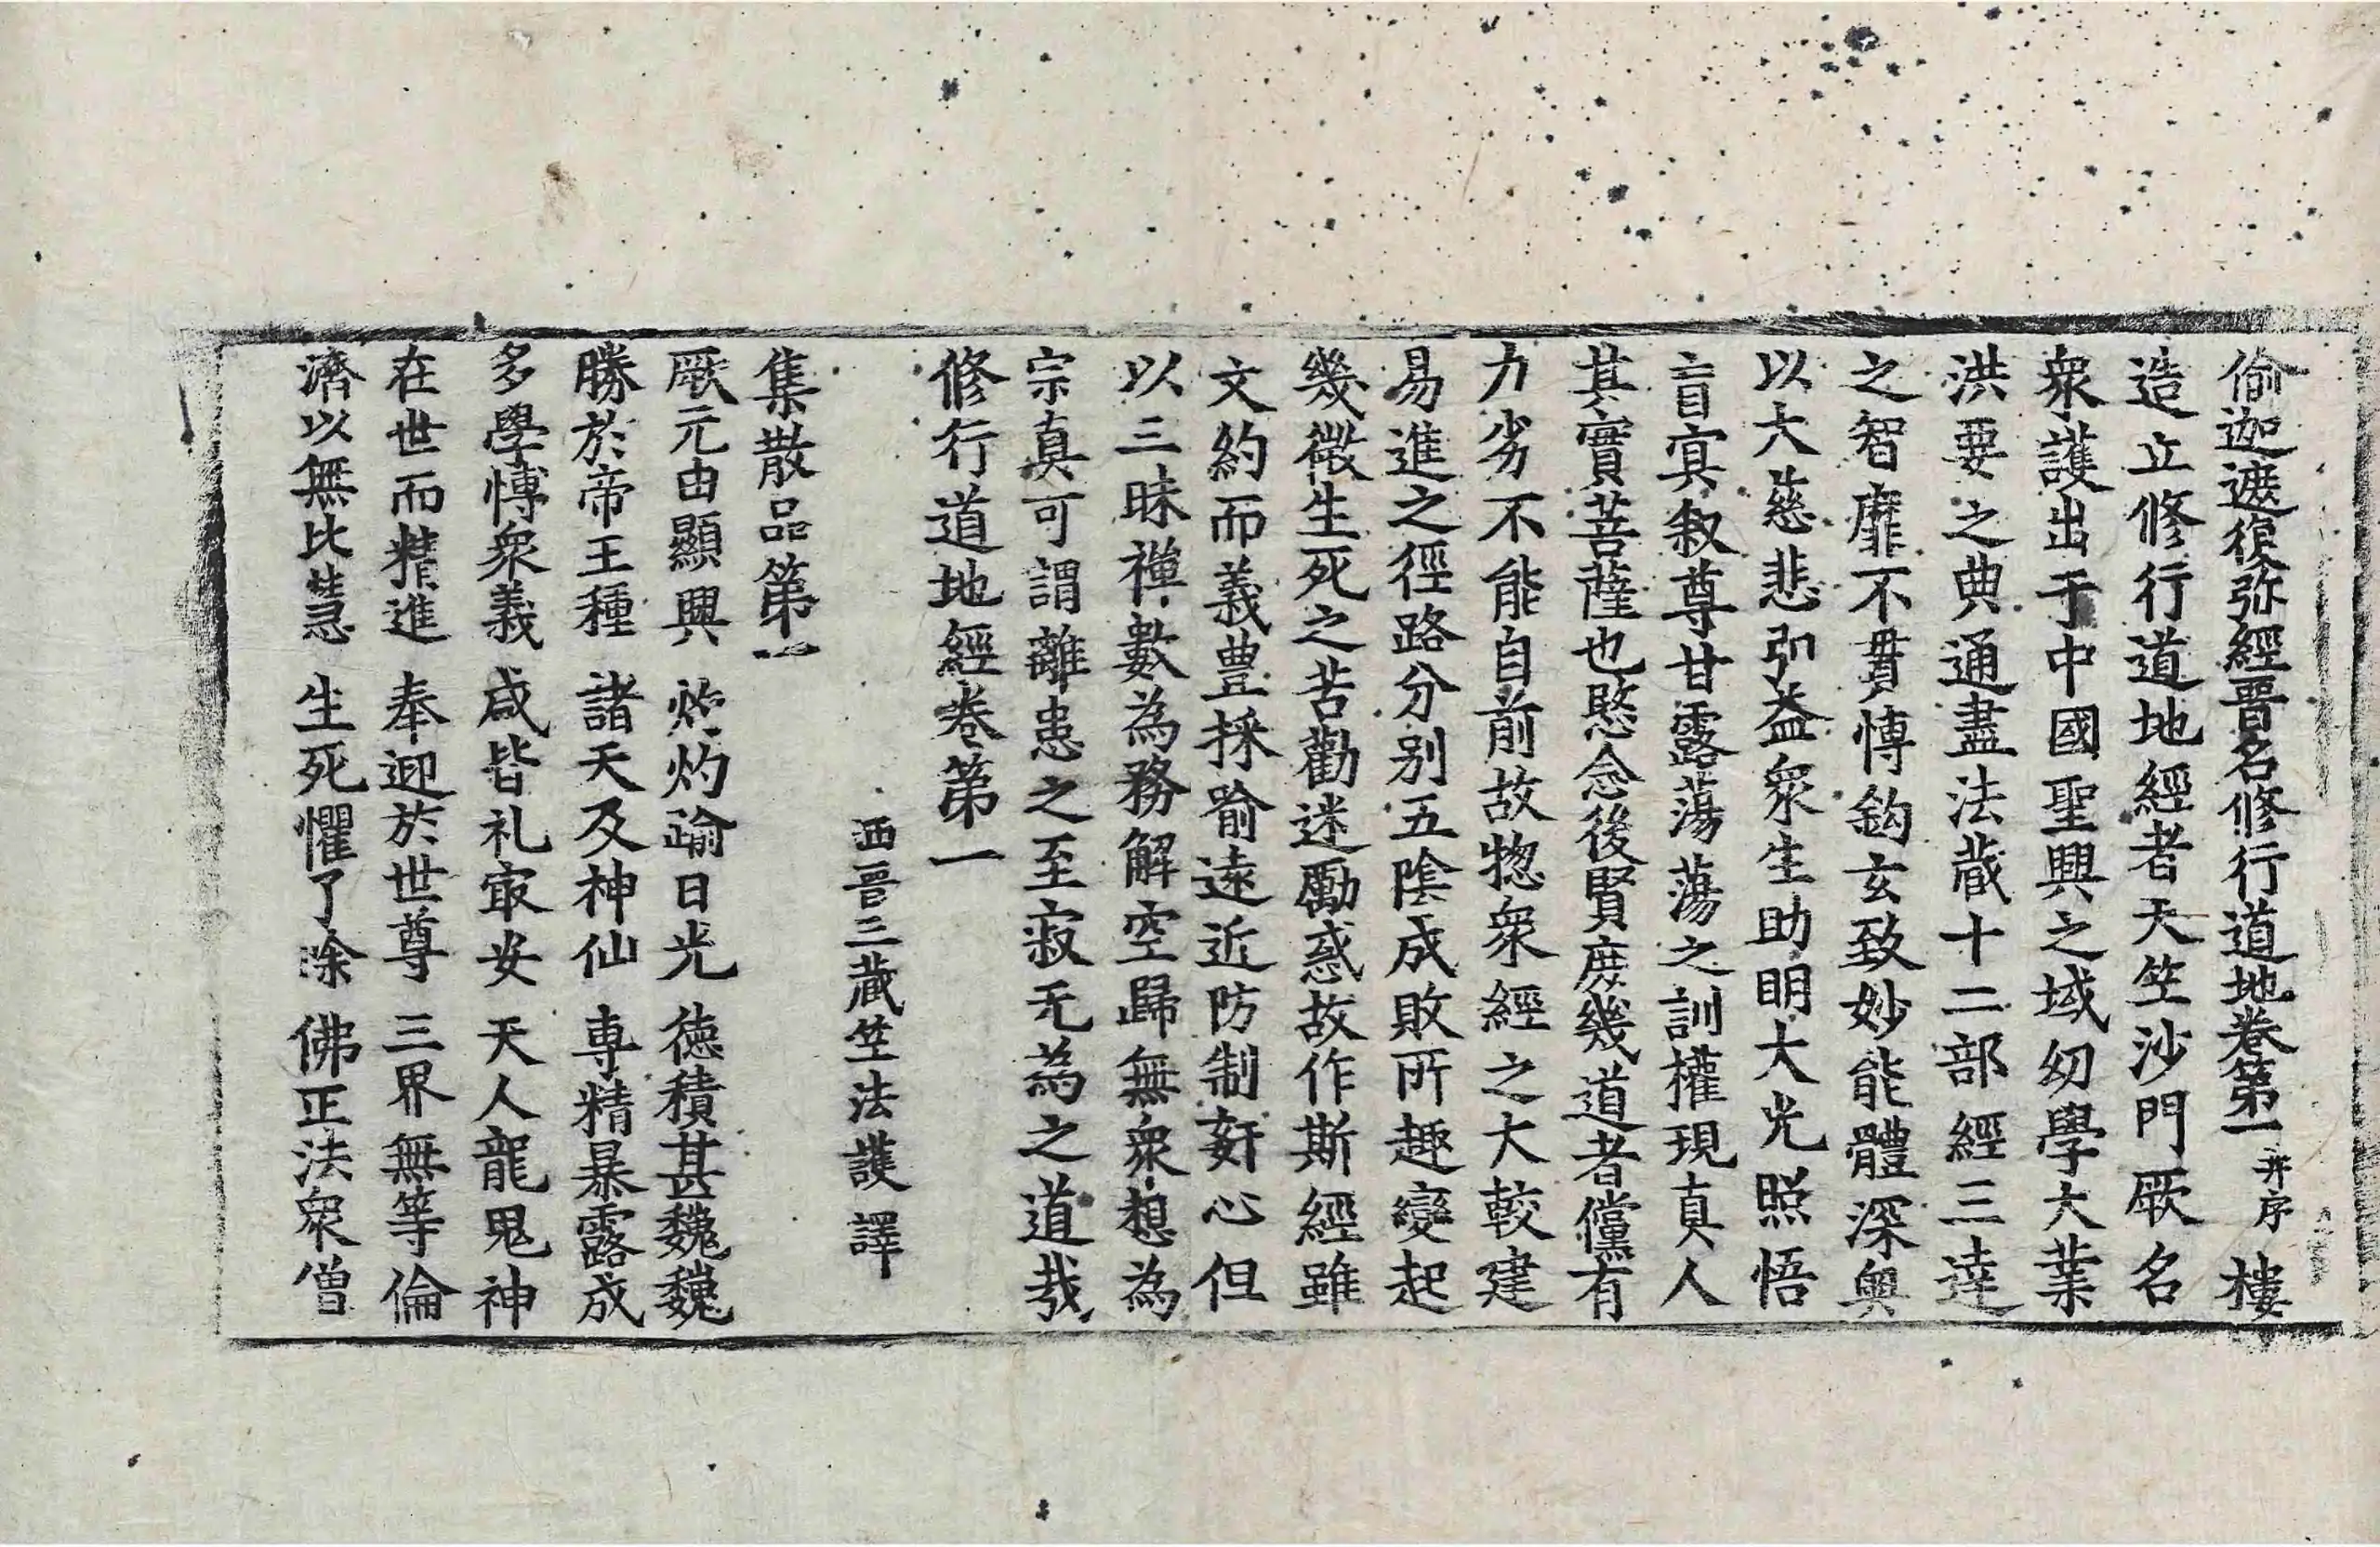 偷迦遮復弥經晋名修行道地卷第一并序 樓
造立修行道地經者天竺沙門厥名
衆護出于中國聖興之域幼學大業
洪要之典通盡法藏十二部經三達
之智靡不貫愽鈎玄致妙能體深奥
以大慈悲弘益衆生助明大光照悟
盲㝠叙尊甘露蕩蕩之訓權現真人
其實菩薩也愍念後賢庶幾道者儻有
力劣不能自前故惣衆經之大較建
易進之徑路分别五隂成敗所趣變起
幾微生死之苦勸迷勵惑故作斯經雖
文約而義豊採喻遠近防制姧心但
以三昧禪數為務解空歸無衆想為
宗真可謂離患之至寂无為之道㢤
修行道地經卷第一
西晉三藏竺法護譯
集散品第一
厥元由顯興 灼灼踰日光 徳積甚巍巍
勝於帝王種 諸天及神仙 専精暴露成
多學愽衆義 咸皆礼㝡安 天人龍鬼神
在世而精進 奉迎於世尊 三界無等倫
濟以無比慧 生死懼了除 佛正法衆僧